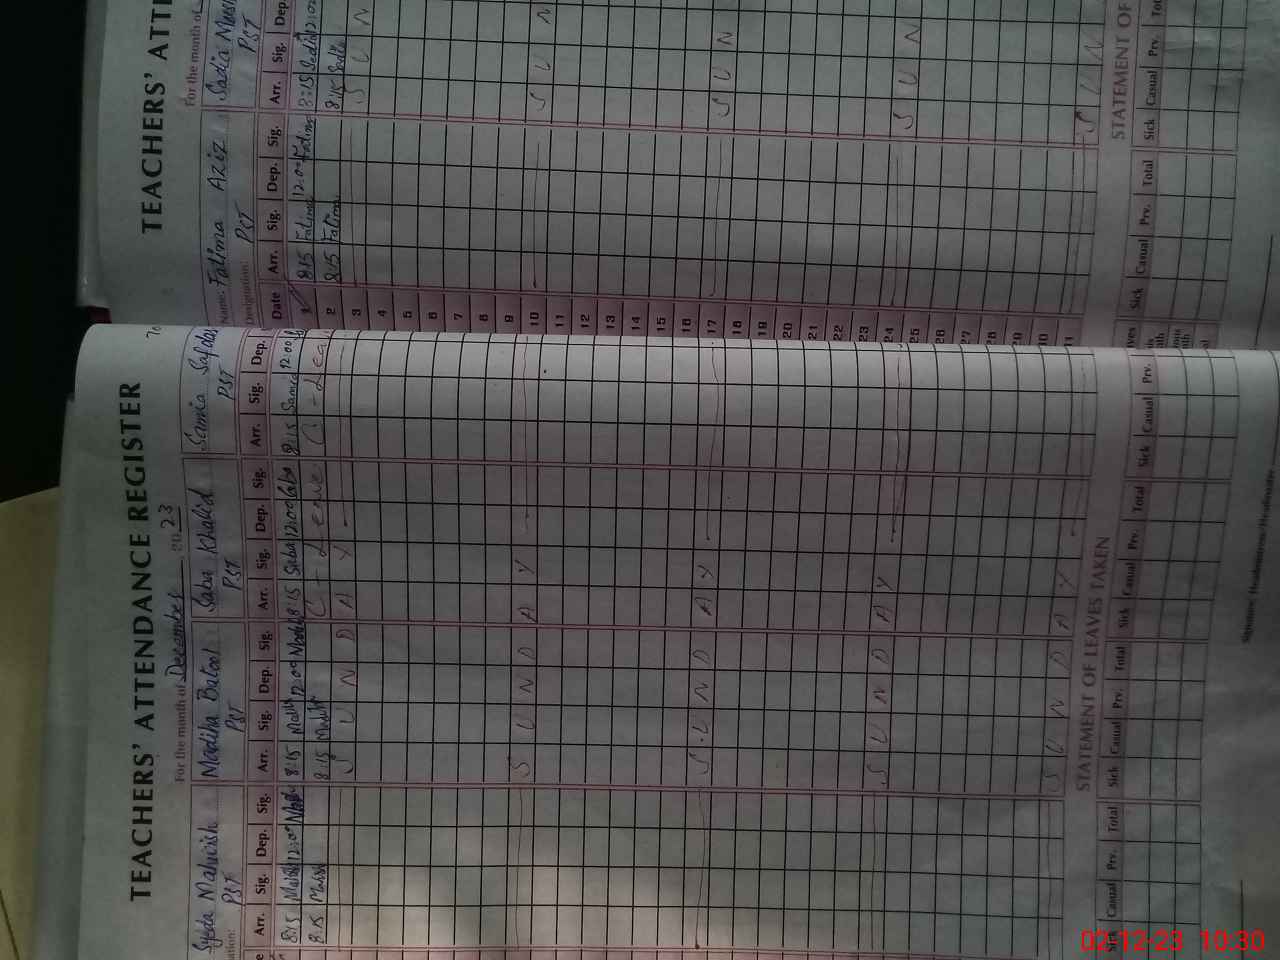 TEACHERS' ATTENDANCE REGISTER
For the month of December 2023
Syeda Mahwish Madiha Batool Saba Khalid Samia Safdar
PST PST PST PST
Arr. Sig. Dep. Sig. Arr. Sig. Dep. Sig. Arr. Sig. Dep. Sig. Arr. Sig. Dep.
8:15 12:00 8:15 12:00 8:15 Saba 12:00 Saba 8:15 Samia 12:00
8:15 8:15 C - Leave C - Lea
S U N D A Y
S U N D A Y
S U N D A Y
S U N D A Y
S U N D A Y
STATEMENT OF LEAVES TAKEN
Sick Casual Prv. Total Sick Casual Prv. Total Sick Casual Prv. Total Sick Casual Prv.
Signature Headmistress/Headmaster
TEACHERS' ATTE
For the month of
Name: Fatima Aziz Sadia
Designation: PST PST
Date Arr. Sig. Dep. Sig. Arr. Sig. Dep.
1 8:15 Fatima 12:00 Fatima 8:15 Sadia 12:00
2 8:15 Fatima 8:15 Sadia
3 S U N
4
5
6
7
8
9
10 S U N
11
12
13
14
15
16
17 S U N
18
19
20
21
22
23
24 S U N
25
26
27
28
29
30
31 S U N
STATEMENT OF
Sick Casual Prv. Total Sick Casual Prv. Tot
02-12-23 10:30